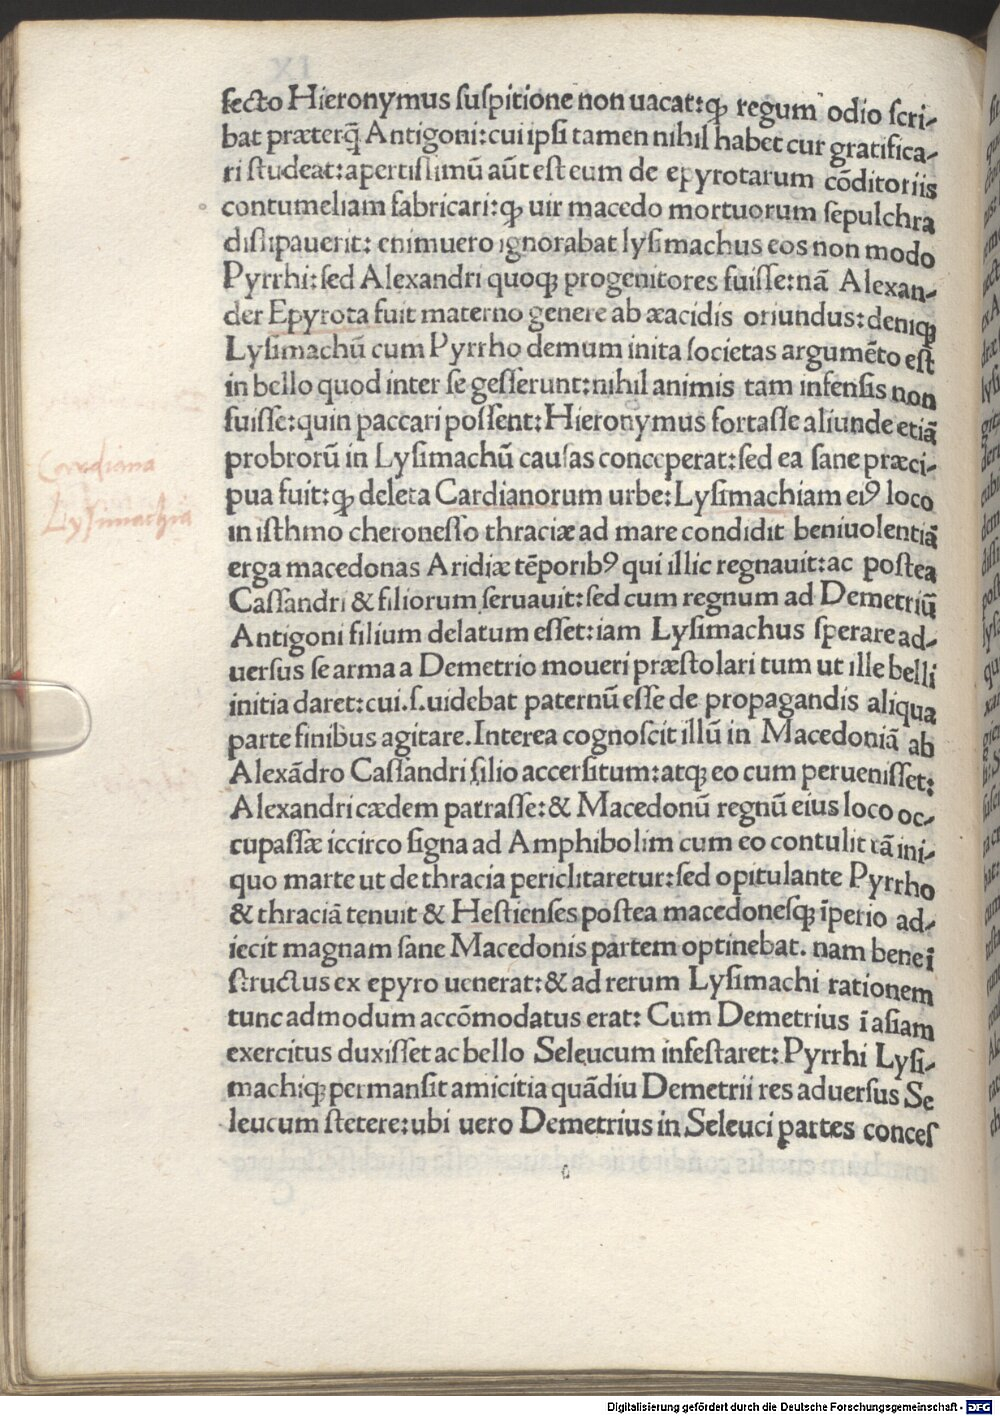 fecto Hieronymus ſuſpitione non uacat:ꝙ regum odio ſcri-
bat præterq̄ Antigoni:cui ipſi tamen nihil habet cur gratifica-
ri ſtudeat:apertiſſimū aūt eſt eum de epyrotarum cōditoriis
contumeliam fabricari:ꝙ uir macedo mortuorum ſepulchra
diſſipauerit: enimuero ignorabat lyſimachus eos non modo
Pyrrhi:ſed Alexandri quoqꝫ progenitores fuiſſe:nā Alexan-
der Epyrota fuit materno genere ab æacidis oriundus:deniqꝫ
Lyſimachū cum Pyrrho demum inita ſocietas argumēto eſt
in bello quod inter ſe geſſerunt:nihil animis tam infenſis non
fuiſſe:quin paccari poſſent:Hieronymus fortaſſe aliunde etiā
probrorū in Lyſimachū cauſas conceperat:ſed ea ſane præci-
pua fuit:ꝙ deleta Cardianorum urbe:Lyſimachiam eiꝰ loco
in iſthmo cheroneſſo thraciæ ad mare condidit beniuolentiā
erga macedonas Aridiæ tēporibꝰ qui illic regnauit:ac poſtea
Caſſandri & filiorum ſeruauit:ſed cum regnum ad Demetriū
Antigoni filium delatum eſſet:iam Lyſimachus ſperare ad-
uerſus ſe arma a Demetrio moueri præſtolari tum ut ille belli
initia daret:cui.ſ.uidebat paternū eſſe de propagandis aliqua
parte finibus agitare.Interea cognoſcit illū in Macedoniā ab
Alexādro Caſſandri filio accerſitum:atqꝫ eo cum perueniſſet:
Alexandri cædem patraſſe:& Macedonū regnū eius loco oc-
cupaſſæ iccirco ſigna ad Amphibolim cum eo contulit tā ini-
quo marte ut de thracia periclitaretur:ſed opitulante Pyrrho
& thraciā tenuit & Heſtienſes poſtea macedoneſqꝫ īperio ad-
iecit magnam ſane Macedonis partem optinebat. nam bene ī
ſtructus ex epyro uenerat:& ad rerum Lyſimachi rationem
tunc admodum accōmodatus erat: Cum Demetrius ī aſiam
exercitus duxiſſet ac bello Seleucum infeſtaret: Pyrrhi Lyſi-
machiqꝫ permanſit amicitia quādiu Demetrii res aduerſus Se
leucum ſtetere:ubi uero Demetrius in Seleuci partes conceſ
Cardiana
Lyſimachia
Digitalisierung gefördert durch die Deutsche Forschungsgemeinschaft - DFG